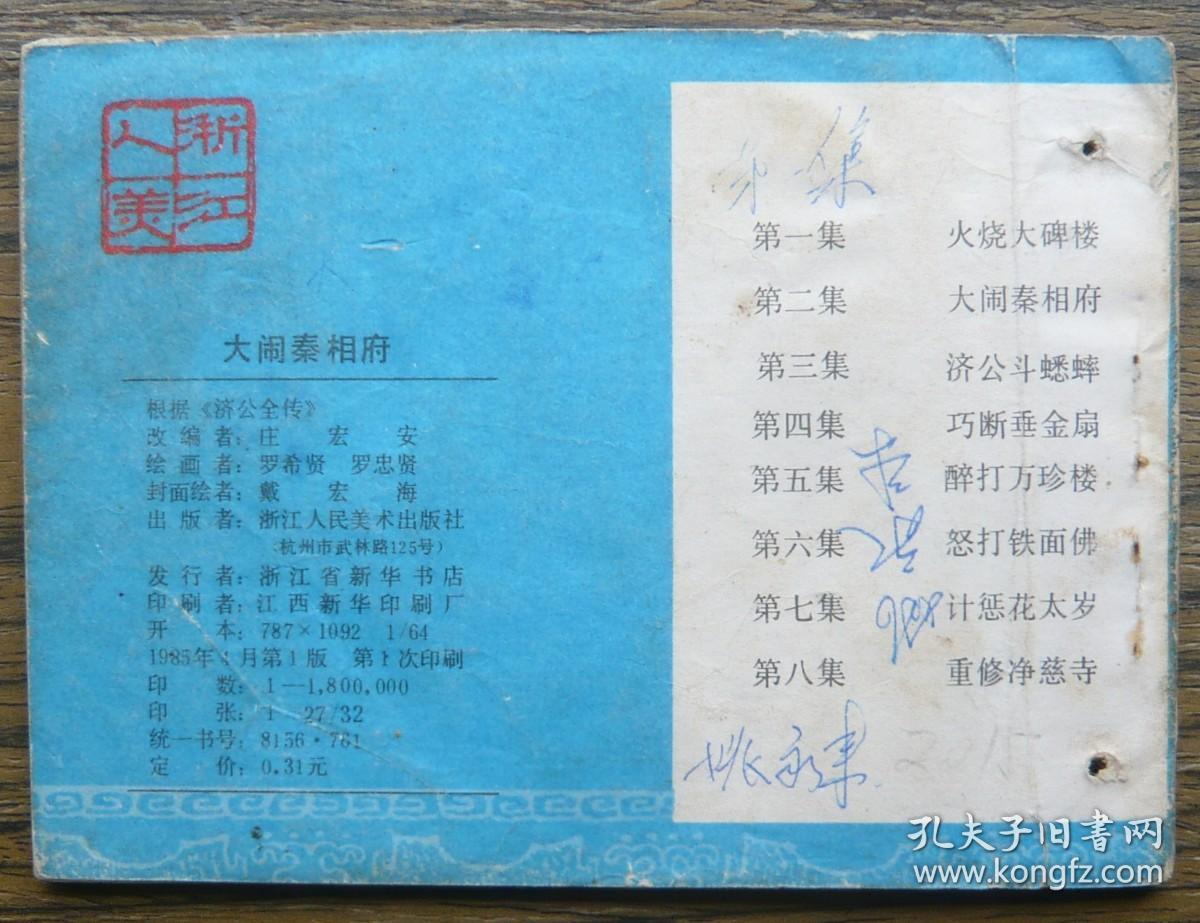 浙江
人美
大闹秦相府
根据《济公全传》
改编者：庄宏安
绘画者：罗希贤 罗忠贤
封面绘者：戴宏海
出版者：浙江人民美术出版社
（杭州市武林路125号）
发行者：浙江省新华书店
印刷者：江西新华印刷厂
开本：787×1092 1/64
1985年4月第1版 第1次印刷
印数：1—1,800,000
印张：1 27/32
统一书号：8156·761
定价：0.31元
第一集 火烧大碑楼
第二集 大闹秦相府
第三集 济公斗蟋蟀
第四集 巧断垂金扇
第五集 醉打万珍楼
第六集 怒打铁面佛
第七集 计惩花太岁
第八集 重修净慈寺
孔夫子旧书网
www.kongfz.com